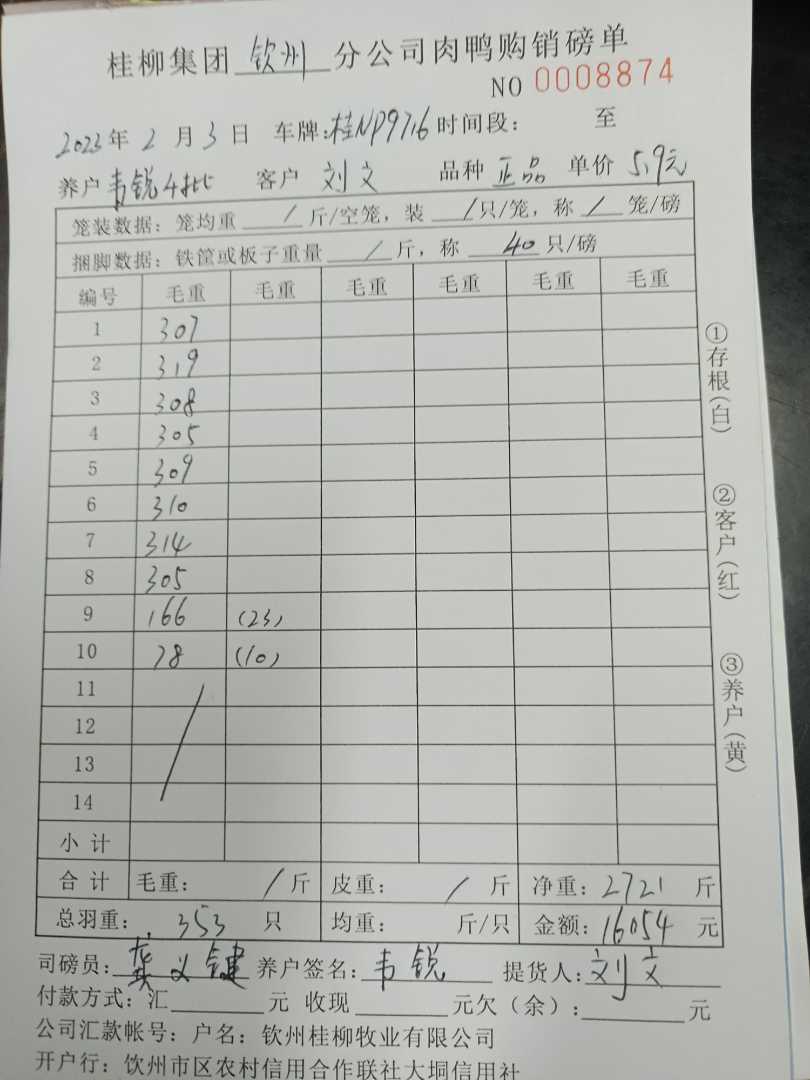 桂柳集团 钦州 分公司肉鸭购销磅单
NO 0008874
2023年 2 月 3 日 车牌:桂NP9716 时间段: 至
养户 韦锐4批 客户 刘文 品种 正品 单价 5.9元
笼装数据: 笼均重 / 斤/空笼, 装 / 只/笼, 称 / 笼/磅
捆脚数据: 铁筐或板子重量 / 斤, 称 40 只/磅
编号 毛重 毛重 毛重 毛重 毛重 毛重
1 307
2 319
3 308
4 305
5 309
6 310
7 314
8 305
9 166 (23)
10 78 (10)
11
12
13
14
小计
合计 毛重: / 斤 皮重: / 斤 净重: 2721 斤
总羽重: 353 只 均重: 斤/只 金额: 16054 元
司磅员: 龚义键 养户签名: 韦锐 提货人: 刘文
付款方式: 汇 元 收现 元欠(余): 元
公司汇款帐号: 户名: 钦州桂柳牧业有限公司
开户行: 钦州市区农村信用合作联社大垌信用社
①存根(白)
②客户(红)
③养户(黄)